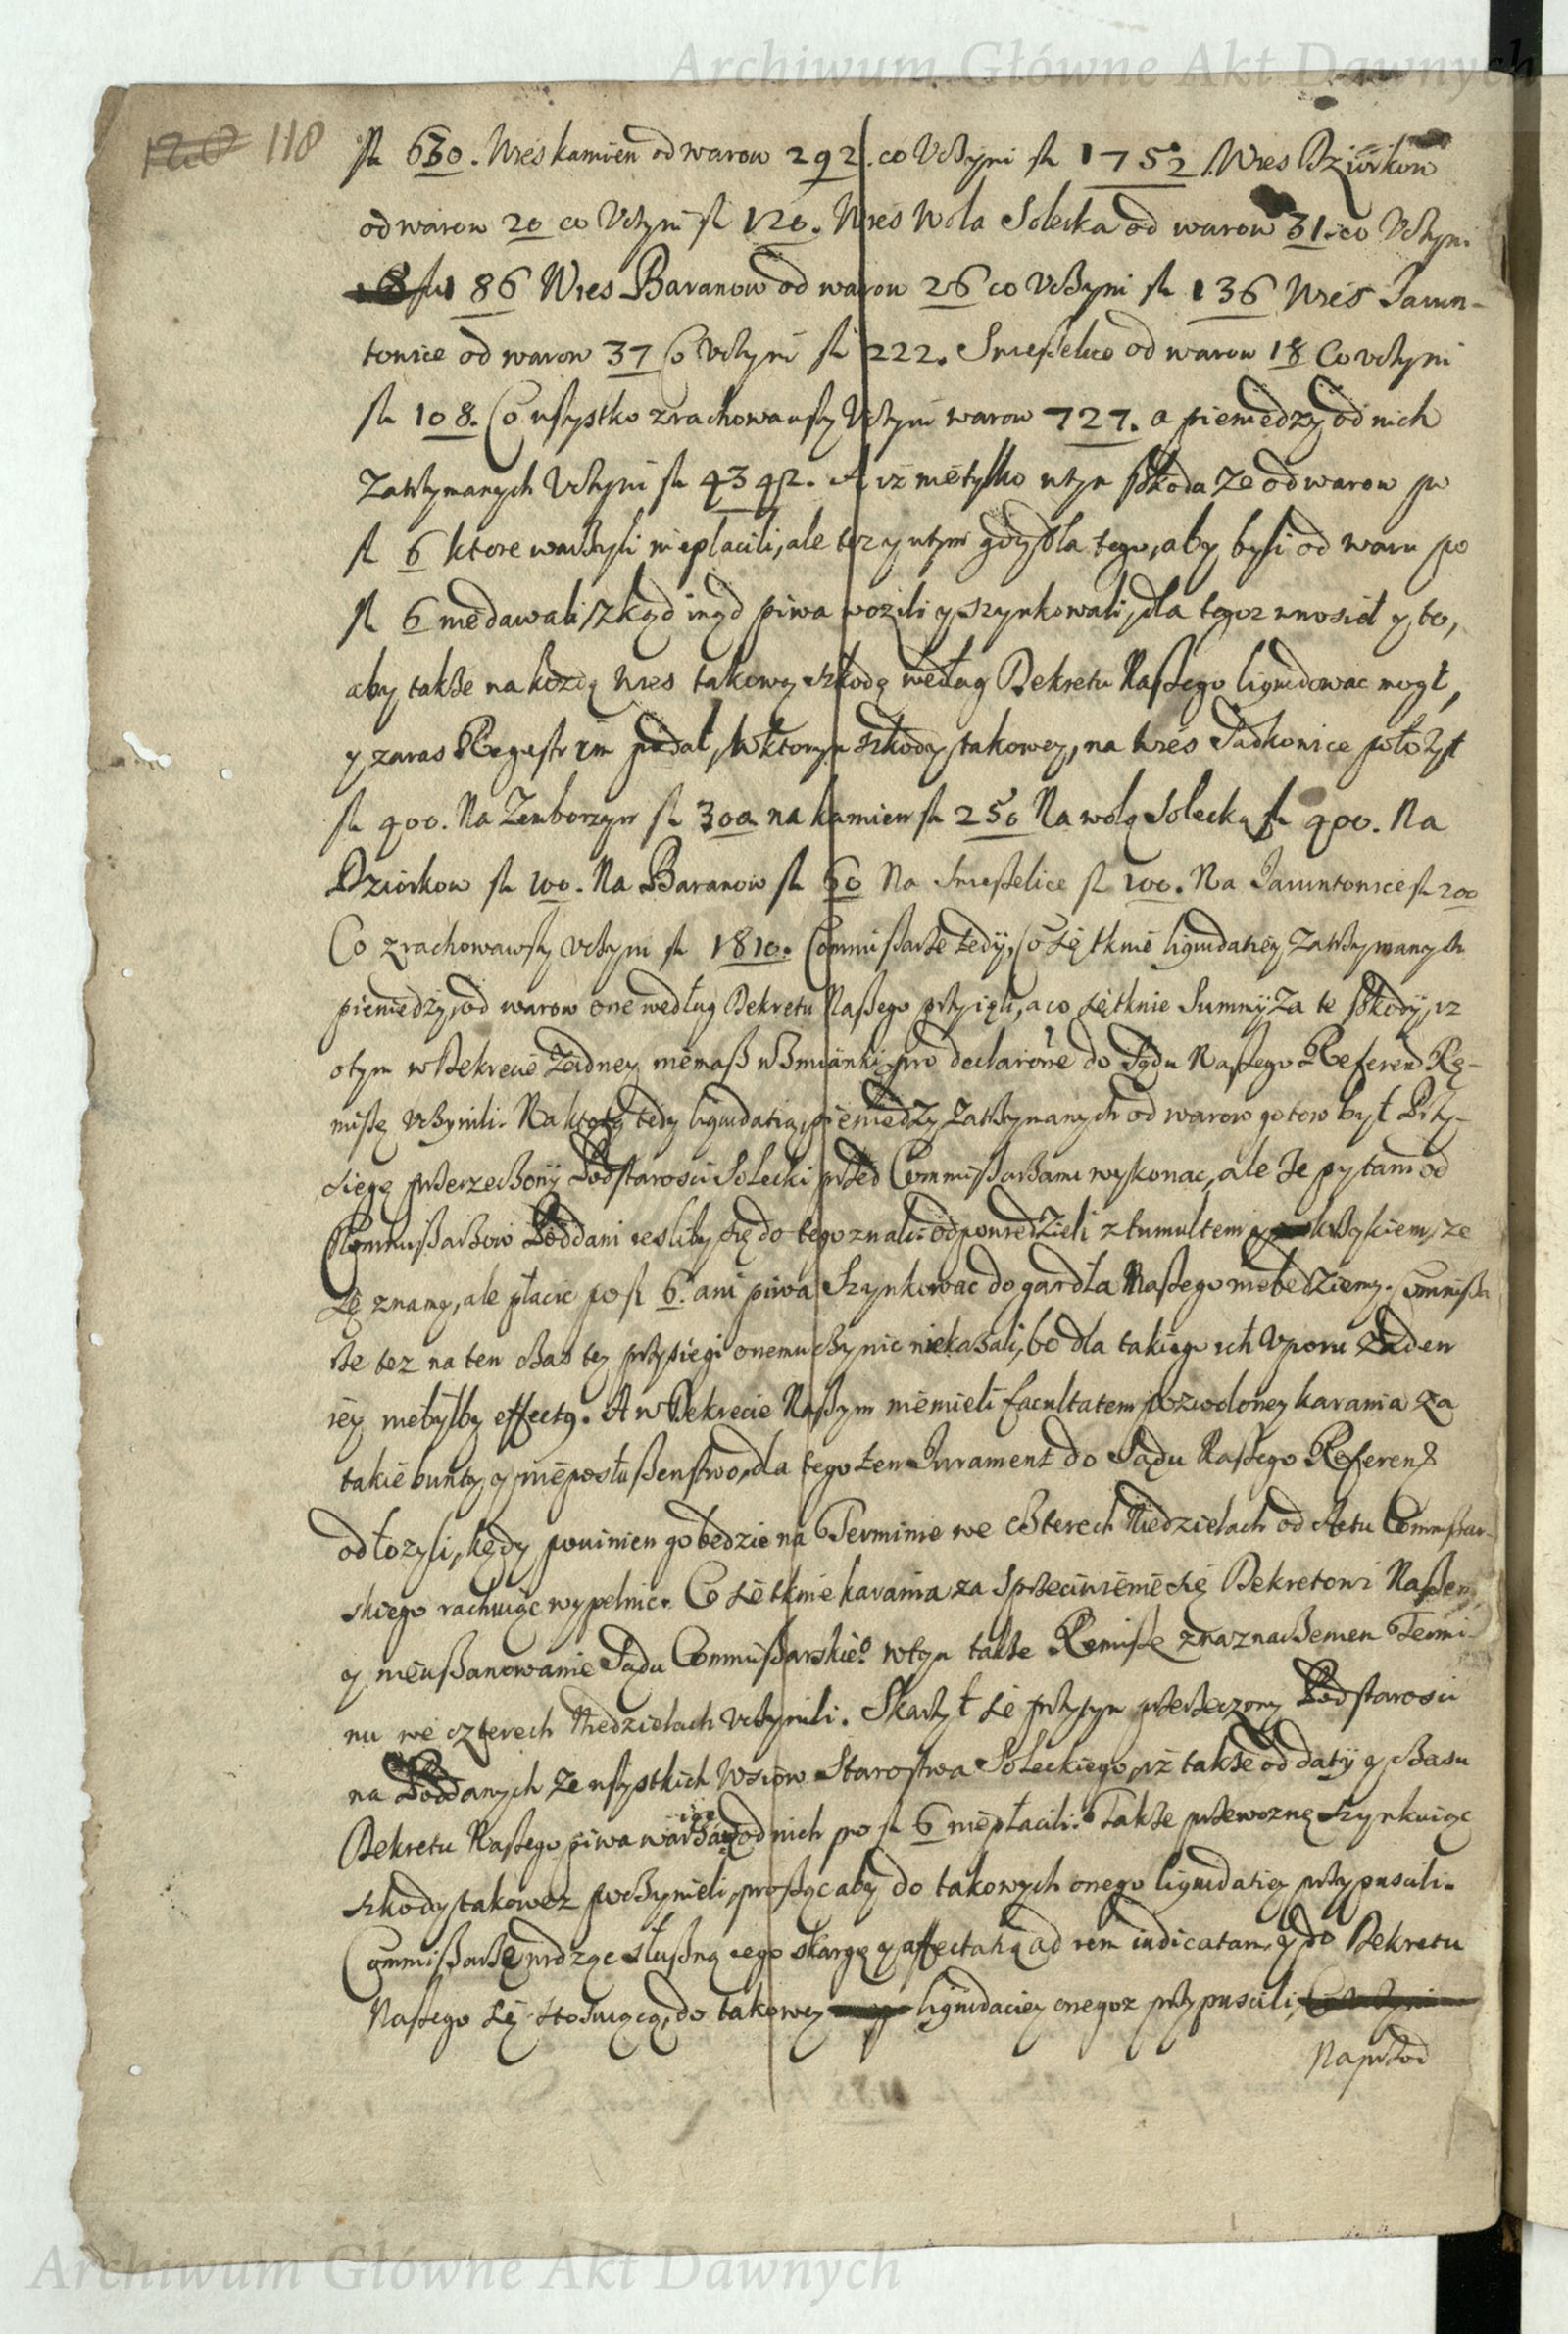 Archiwum Główne Akt Dawnych
120 118
fl 630. Wies kamien od warow 292. co Vczyni fl 1752 Wies Dziurkow
od warow 20 co Vczyni fl 120. Wies Wola Solecka od warow 31. co Vczyni
fl 186 Wies Baranow od warow 26 co Vczyni fl 136 Wies Jawn-
tonice od warow 37 Co Vczyni fl 222. Smeßelice od warow 18 Co vczyni
fl 108. Co wszystko zrachowawszy Vczyni warow 727. a pieniędzy od nich
zatrzymanych Vczyni fl 4342. A iz nietylko wtym szkoda ze od warow po
fl 6 ktore warzyli nie płacili, ale tez y wtym gdy dla tego, aby byli od waru po
fl 6 nie dawali zkąd inąd piwa wozili y szynkowali, dla tegoz wnosił y to,
aby takze na kozdą wies takową szkodę według Dekretu Naszego liquidowac mogł,
y zaras Regestr im podał, w ktorym szkody takowey, na wies Sadkowice położył
fl 400. Na Zemborzyn fl 300 na kamien fl 250 Na wolą Solecką fl 400. Na
Dziurkow fl 100. Na Baranow fl 60 Na Smeßelice fl 100. Na Jawntonice fl 200
Co zrachowawszy vczyni fl 1810. Commissarze tedy, Co się tknie liquidatiey zatrzymanych
pieniędzy, od warow one według Dekretu Naszego przyięli, a co się tknie Summy za te szkody, iz
o tym w Dekrecie żadney niemasz wzmianki, pro declarone do Sądu Naszego Referen Re-
missę vczynili. Na ktorą tedy liquidatią, pieniędzy zatrzymanych od warow gotow był Przy-
sięgę przerzeczony Podstarosci Solecki przed Commissarzami wykonac, ale ze pytani od
Commissarzow Poddani iesliby się do tego znali: odpowiedzieli z tumultem krzykiem, ze
się znamy, ale płacic po fl 6. ani piwa szynkowac do gardła Naszego niebędziemy. Commissa
rze tez na ten czas tey przysięgi onemu czynic niekazali, bo dla takiego ich Vporu żaden
iey niebyłby effectus. A w Dekrecie Naszym niemieli facultatem pozwoloney karania za
takie bunty y nieposłuszenstwo, dla tego ten Jurament do Sądu Naszego Referen
odłozyli, kędy powinien go bedzie na Terminie we czterech Niedzielach od Actu Commissar-
skiego rachuiąc wypełnic. Co się tknie karania za sprzeciwienie się Dekretowi Naszem
y nieuszanowanie Sądu Commissarskie⁰ wtym takze Remissę z naznaczeniem Termi-
nu we czterech Niedzielach vczynili. Skarzył się przytym przerzeczony Podstarosci
na Poddanych ze wszystkich Wsiow Starostwa Soleckiego, iż takze od daty y czasu
Dekretu Naszego piwa warząiąc od nich po fl 6 niepłacili. Takze przewozne szynkuiąc
szkody takowez poczynieli, prosząc aby do takowych onego liquidatiey przypuscili.
Commissarze widząc słuszną iego skargę y affectatią ad rem iudicatam, y do Dekretu
Naszego się stosuiącą, do takowey liquidaciey onegoz przypuscili,
Naprzod
Archiwum Główne Akt Dawnych